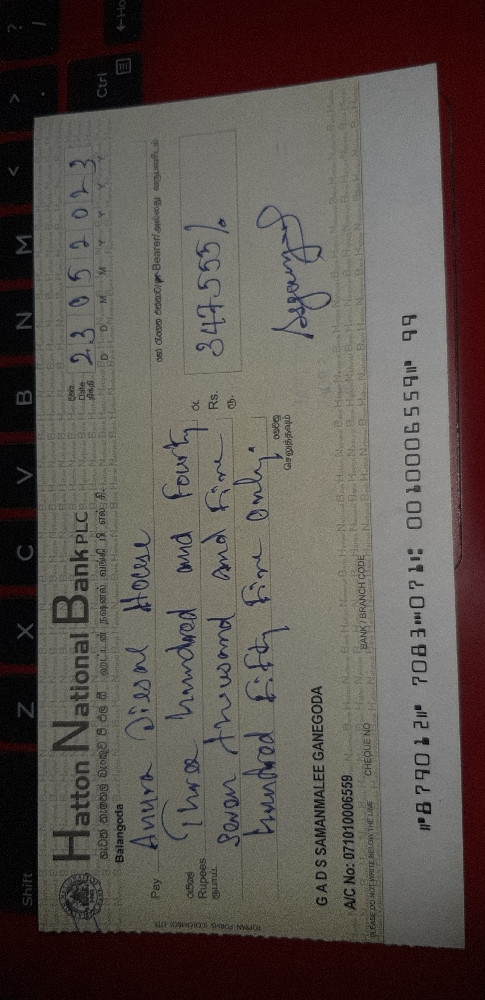 Hatton National Bank PLC
Balangoda
Date
23052023
D D M M Y Y Y Y
Pay Anura Diesal House
Bearer
Rupees Three hundred and Fourty
seven thousand and Five
hundred Fifty Five Only.
Rs. 347555/.
G A D S SAMANMALEE GANEGODA
A/C No: 071010006559
PLEASE DO NOT WRITE BELOW THE LINE
CHEQUE NO
BANK / BRANCH CODE
⑈879012⑈ 7083⑉071⑆ 0010006559⑈ 99
Shift Z X C V B N M < > ? /
Ctrl